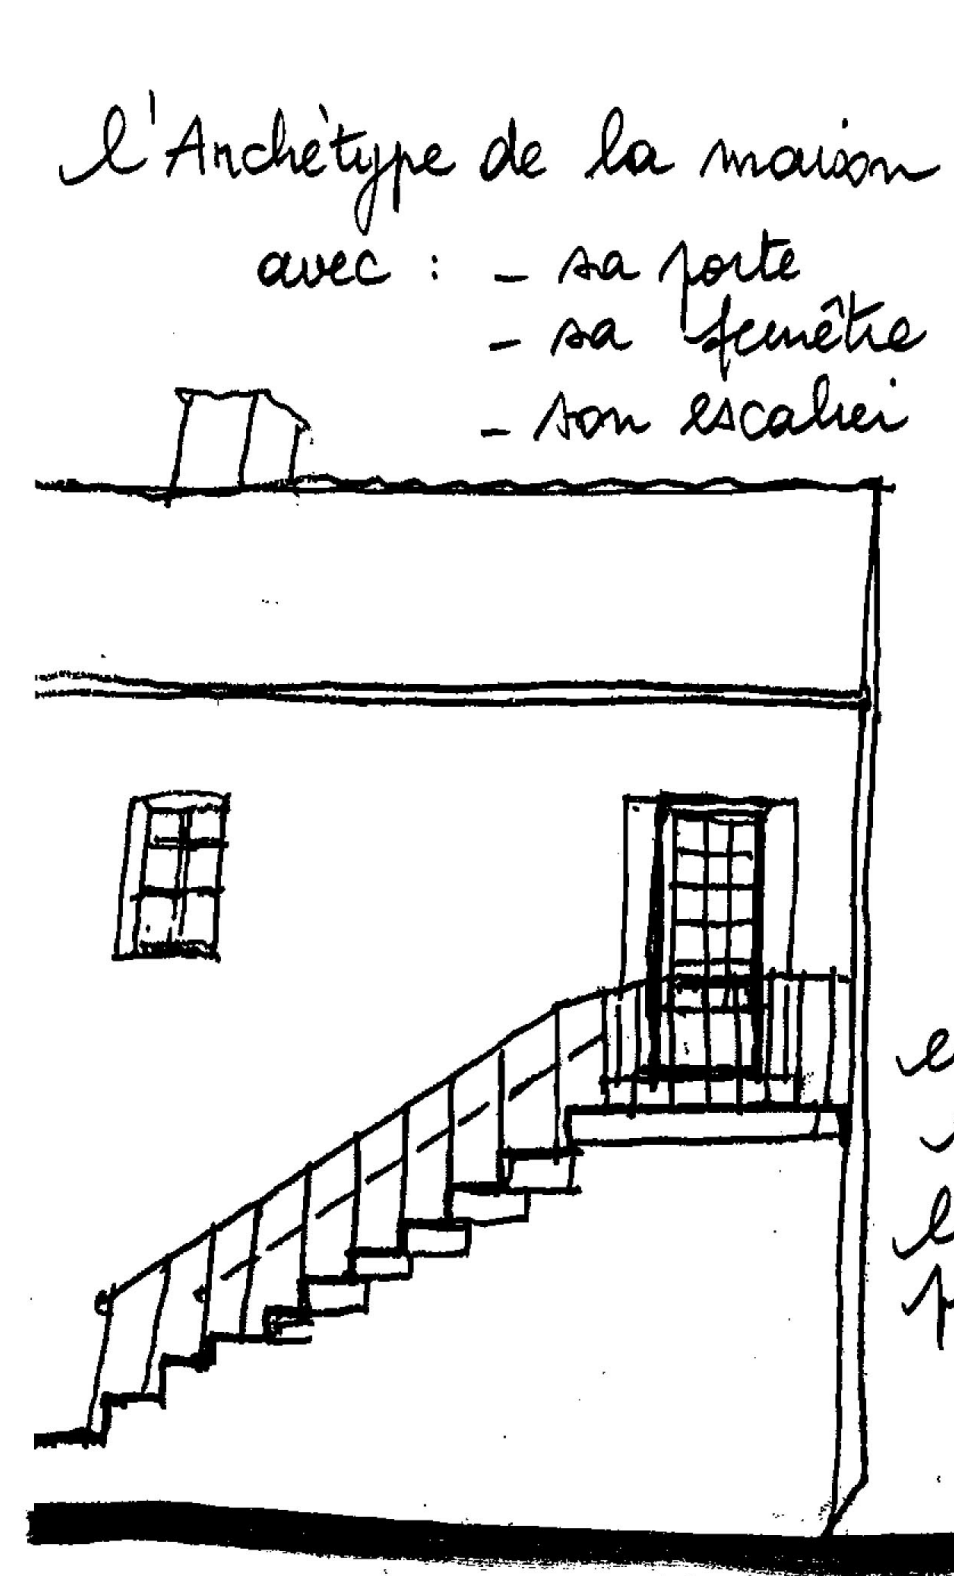 l'Archétype de la maison
avec : - sa porte
- sa fenêtre
- son escalier